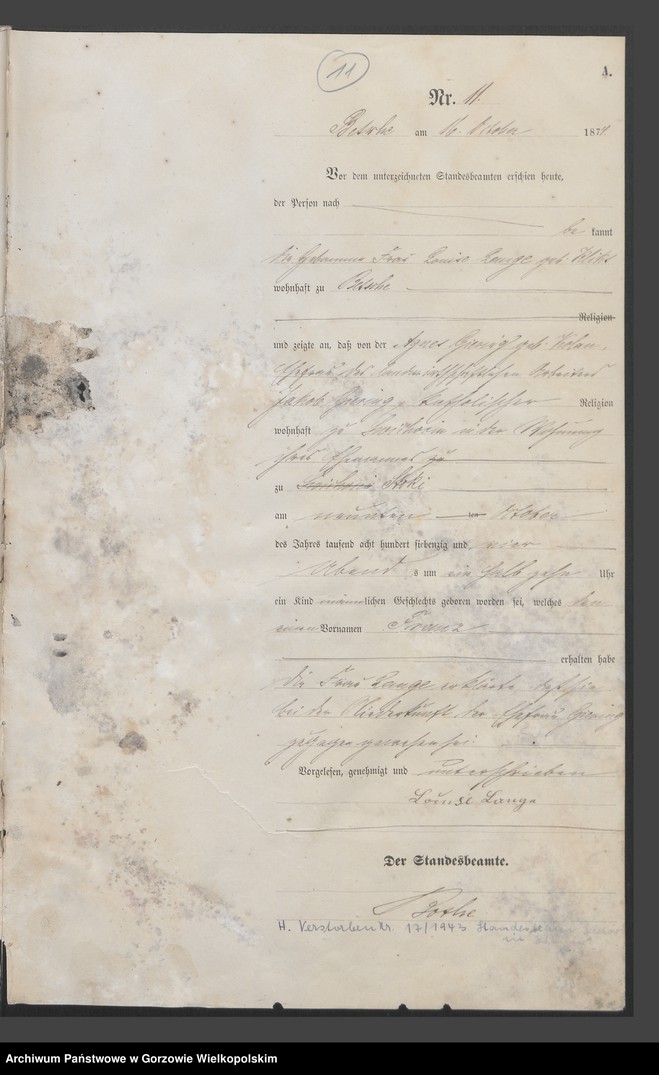 11
A.
Nr. 11.
Betsche am 16. October 1874.
Vor dem unterzeichneten Standesbeamten erschien heute,
der Person nach
be kannt
die Hebamme Frau Louise Lange geb.
wohnhaft zu Betsche
Religion
und zeigte an, daß von der Agnes Giering geb.
Ehefrau des landwirthschaftlichen Arbeiters
Jakob Giering, katholischer Religion
wohnhaft zu in der Wohnung
ihres Ehemannes zu
zu
am neunten ten October
des Jahres tausend acht hundert siebenzig und vier
Abend s um ein halb zehn Uhr
ein Kind männlichen Geschlechts geboren worden sei, welches den
einen Vornamen Franz
erhalten habe
die Frau Lange erklärte, daß sie
bei der Niederkunft der Ehefrau Giering
zugegen gewesen sei
Vorgelesen, genehmigt und unterschrieben
Louise Lange
Der Standesbeamte.
Bothe
H. Verstorben Nr. 17/1943 Standesamt
Archiwum Państwowe w Gorzowie Wielkopolskim